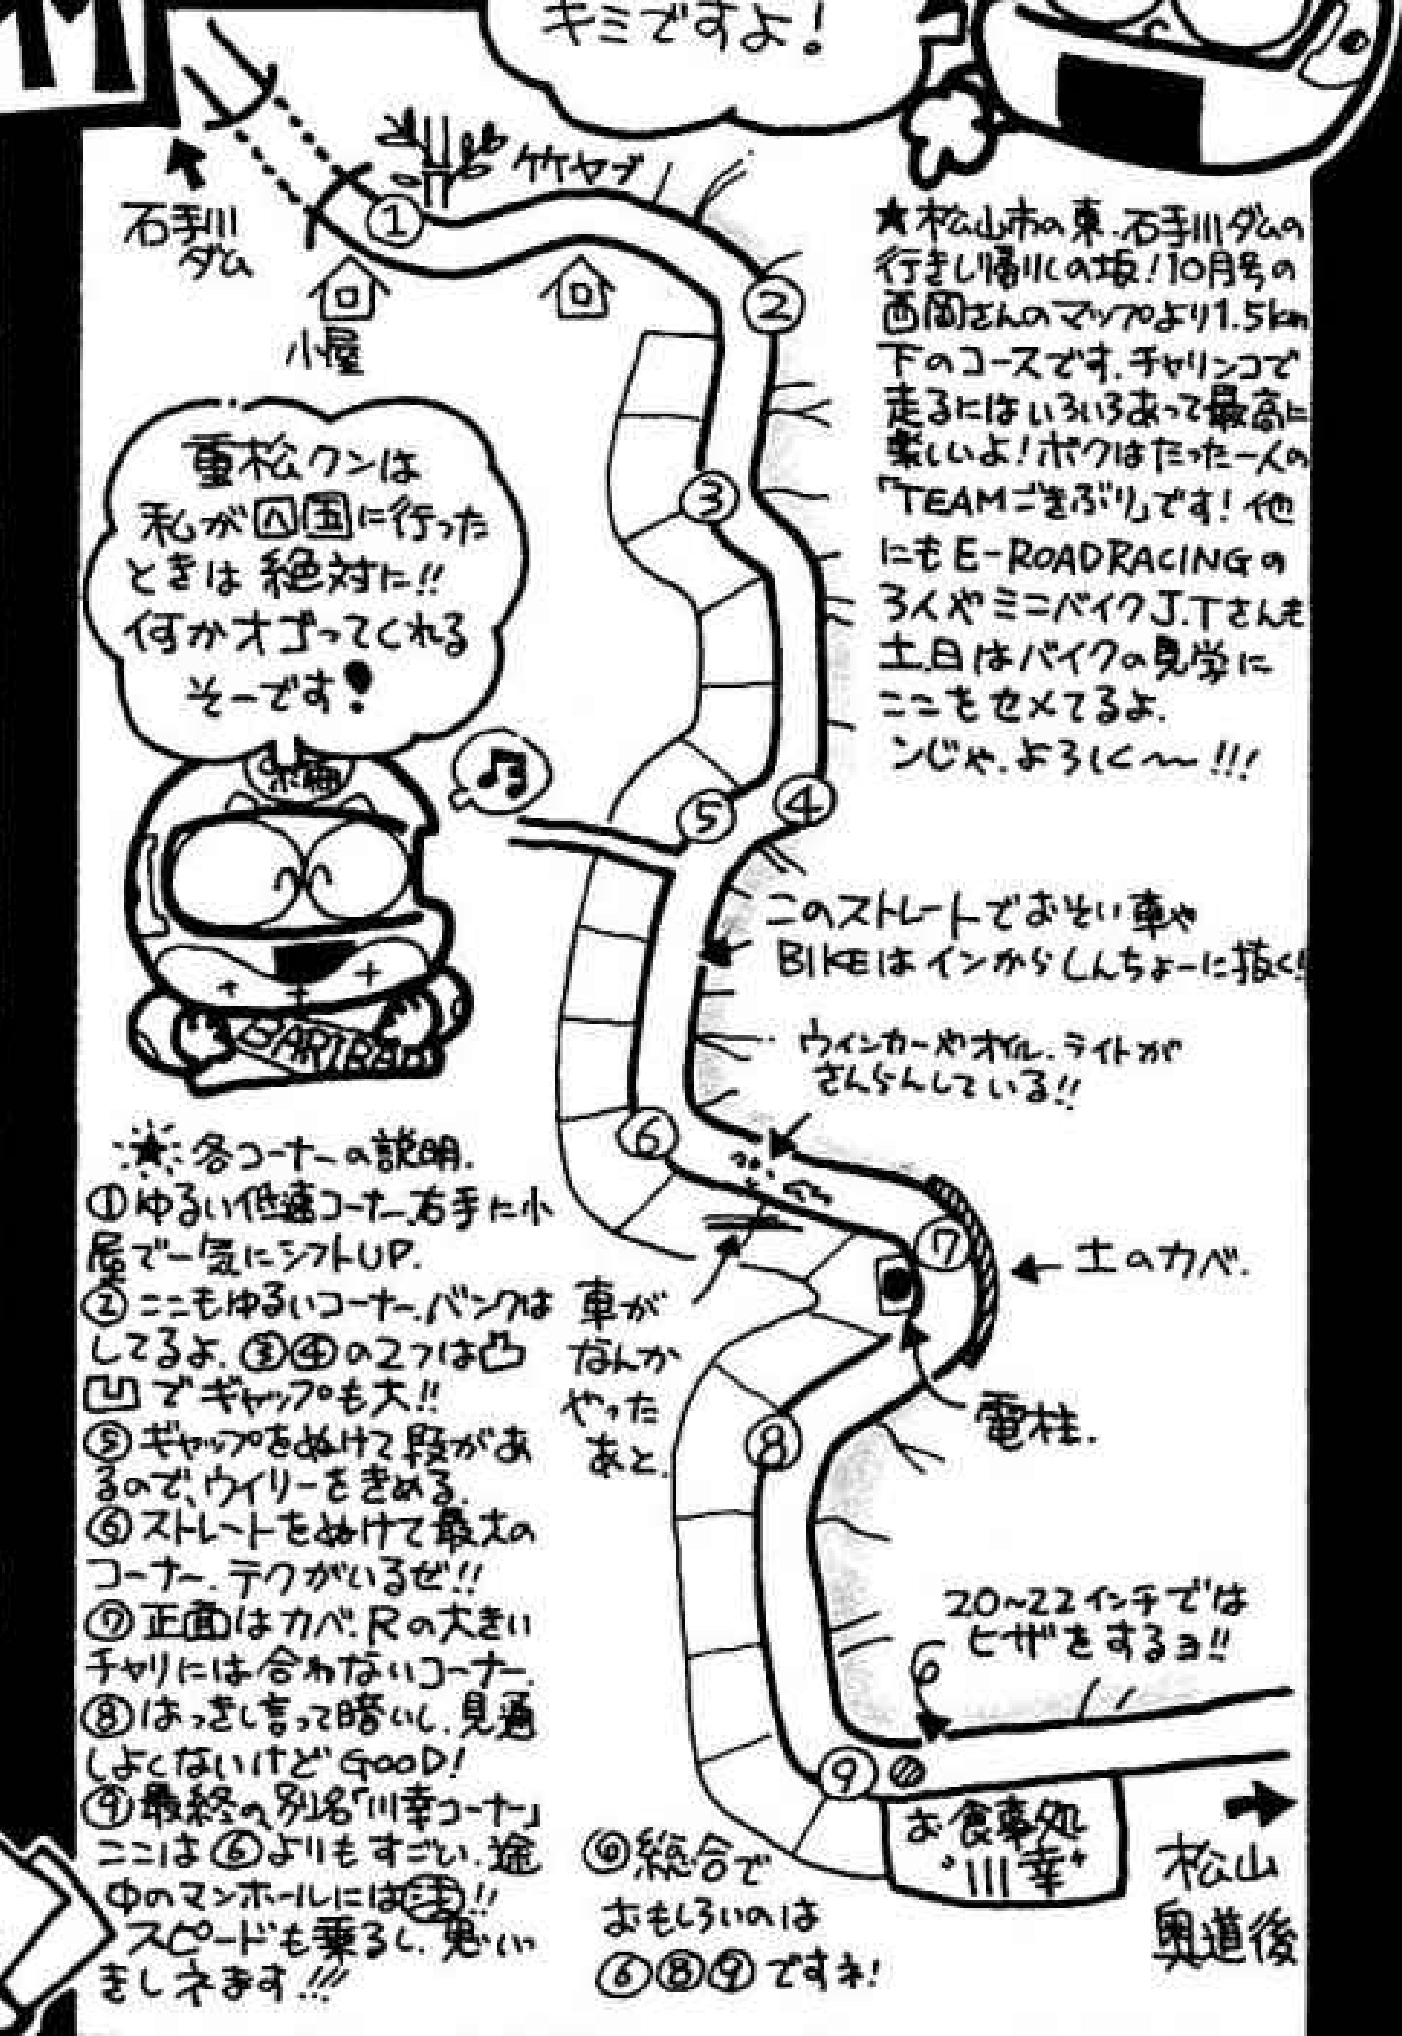 キミですよ!
竹ヤブ
①
石手川
ダム
小屋
②
★松山市の東.石手川ダムの
行きし帰りしの坂!10月号の
西岡さんのマップより1.5km
下のコースです.チャリンコで
走るにはいろいろあって最高に
楽しいよ!ボクはたった一人の
「TEAMごきぶり」です!他
にもE-ROADRACINGの
3人やミニバイクJ.Tさんも
土.日はバイクの見学に
ここもセメてるよ.
ンじゃ.よろしく〜〜!!!
重松クンは
私が四国に行った
ときは絶対に!!
何かオゴってくれる
そーです!
③
④
⑤
編
BARIBARI
このストレートでおそい車や
BIKEはインからしんちょーに抜く!
ウインカーやオイル.ライトが
さんらんしている!!
⑥
⑦
土のカベ.
車が
なんか
やった
あと.
電柱.
⑧
☆各コーナーの説明.
①ゆるい低速コーナー.右手に小
屋で一気にシフトUP.
②ここもゆるいコーナー.バンクは
してるよ.③④の2つは凸
凹でギャップも大!!
⑤ギャップをぬけて段があ
るので、ウイリーをきめる.
⑥ストレートをぬけて最大の
コーナー.テクがいるぜ!!
⑦正面はカベ.Rの大きい
チャリには合わないコーナー.
⑧はっきし言って暗いし.見通
しよくないけどGOOD!
⑨最終の、別名「川幸コーナー」
ここは⑥よりもすごい.途
中のマンホールには注!!
スピードも乗るし.思いっ
きしネます!!!
20~22インチでは
ヒザをするヨ!!
⑨
お食事処
"川幸"
松山
奥道後
◎総合で
おもしろいのは
⑥⑧⑨ですネ!